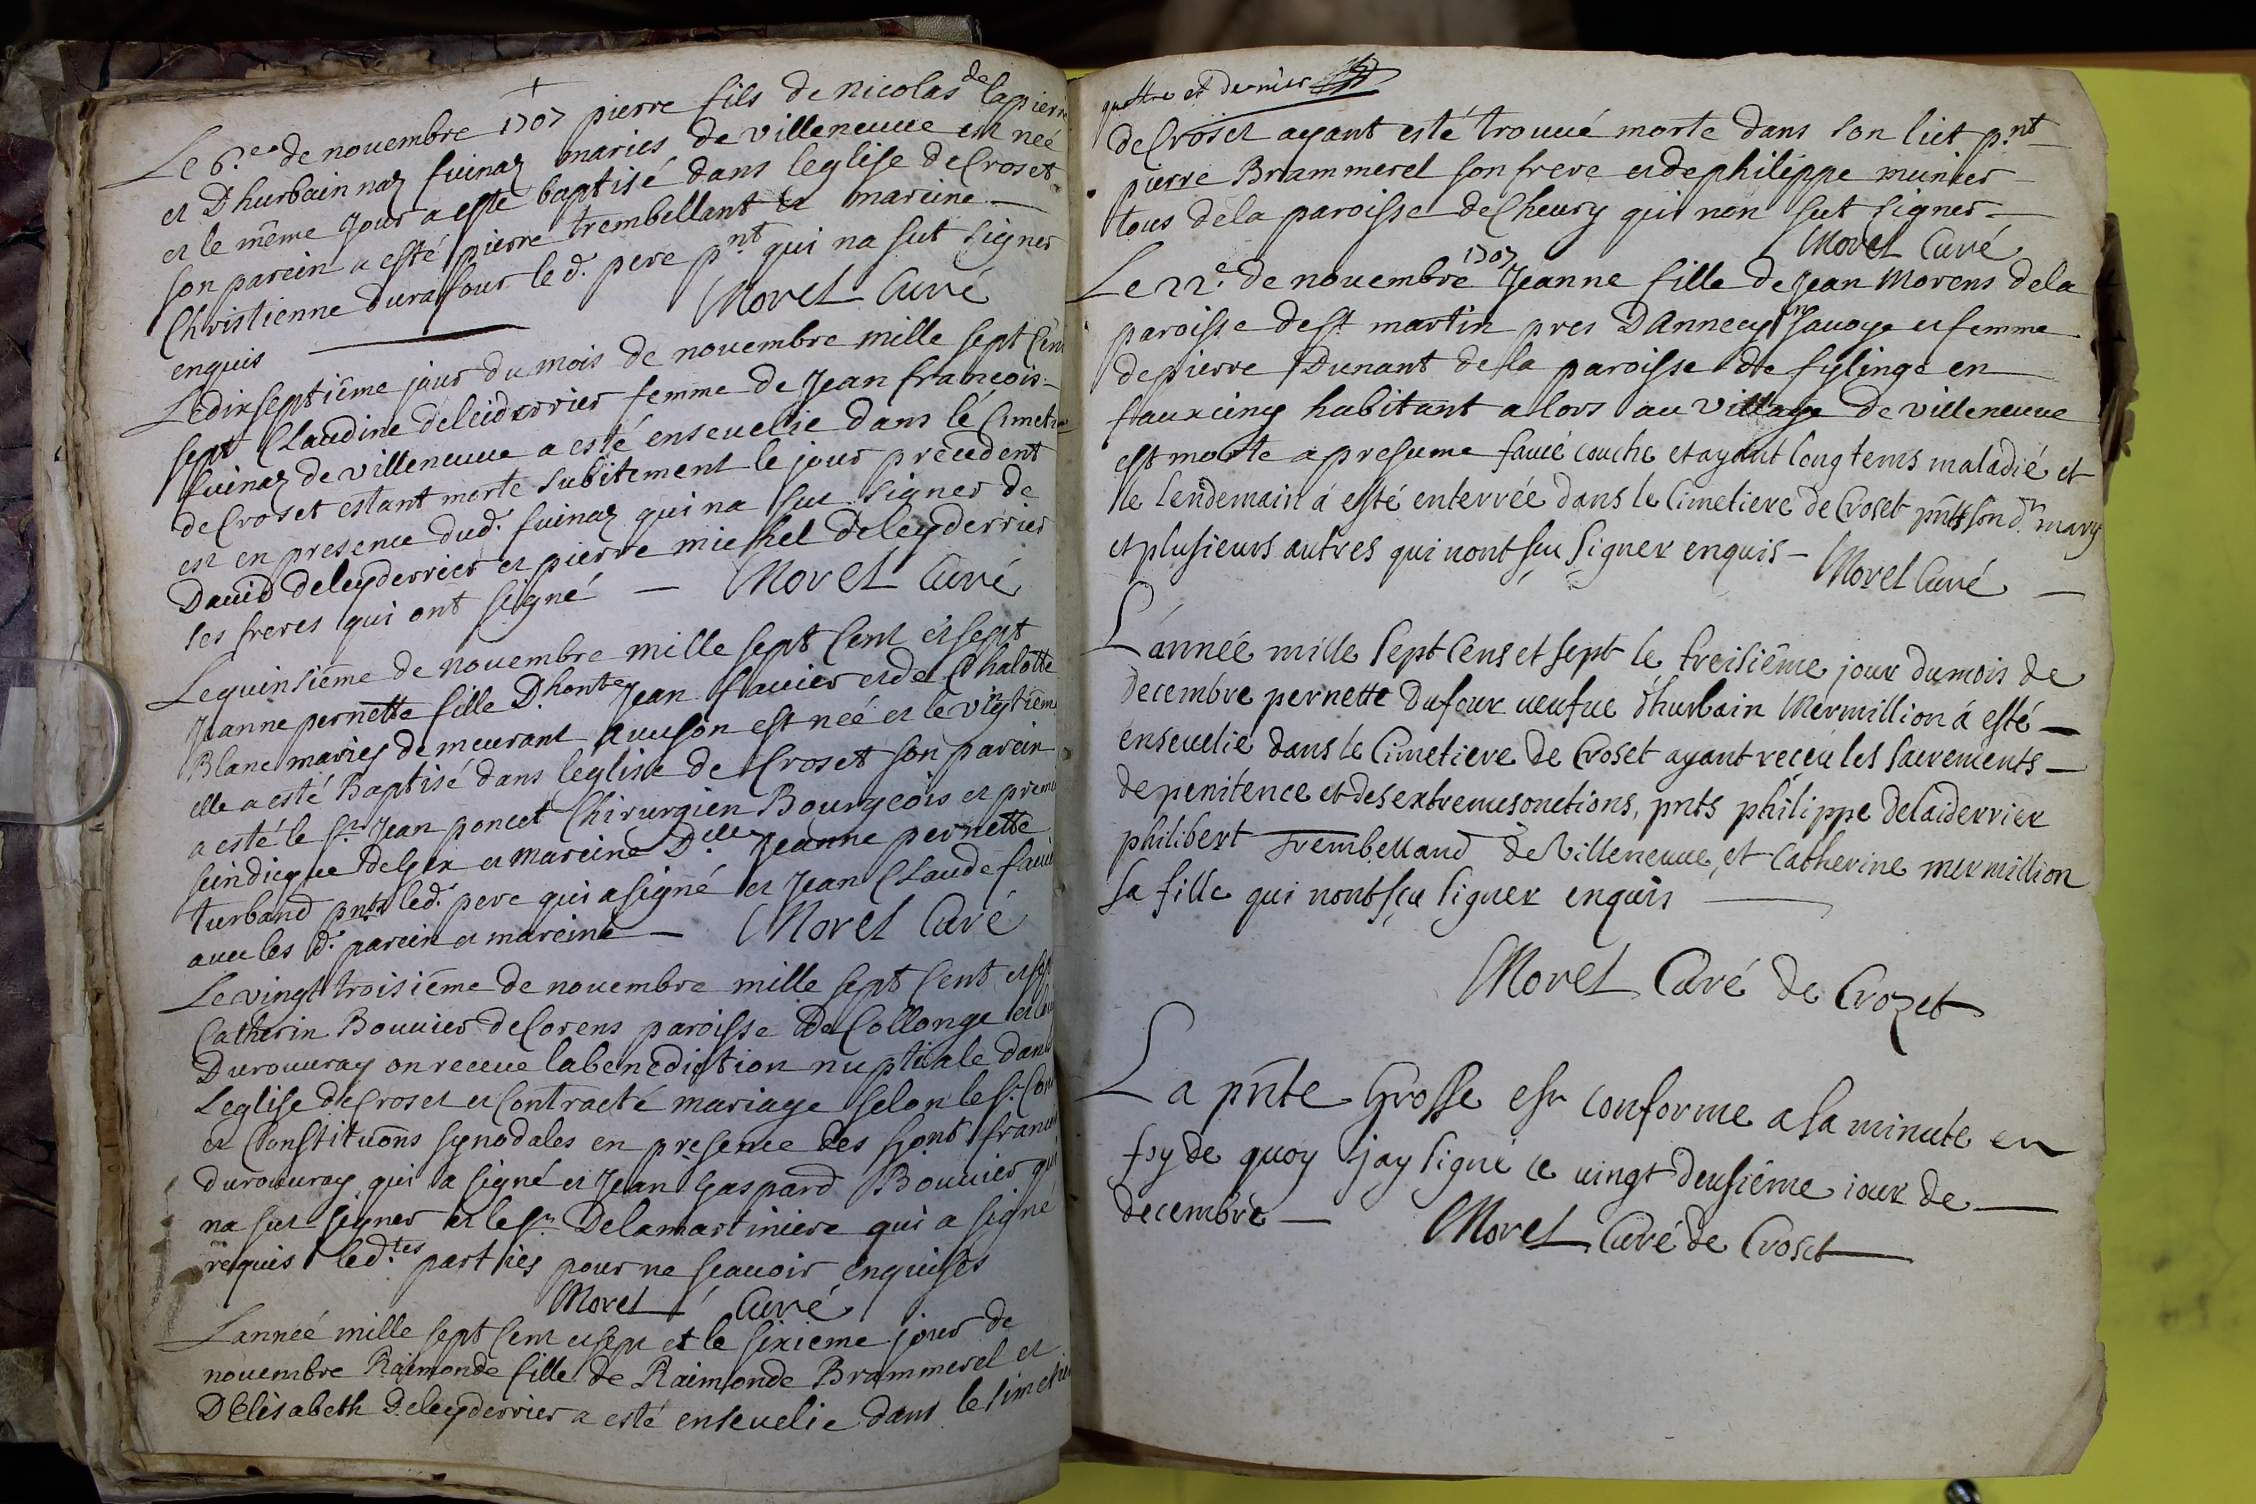 Le 6.e de nouembre 1707 pierre fils de nicolas de lapierre
et Dhurbain naz fuinaz maries de villeneuue est neé
et le même Jour a este baptisé dans leglise de Croset
son parein a esté pierre trembellant et mareine
Christienne durafour le d. pere pnt qui na sut signer
enquis Morel Curé
Le dixseptiême jour du mois de nouembre mille sept Cent
sept Claudine deleiderrier femme de Jean francois
fuinaz de villeneuue a esté enseuelie dans lé Cimetiere
de Croset estant morte subitement le jour précedent
est en presence dud. fuinaz qui na sut signer de
Dauid deleyderrier et pierre michel deleyderrier
ses freres qui ont signé — Morel Curé
Le quinsiême de nouembre mille sept Cent et sept
Jeanne pernette fille Dhonte Jean flauier et de Chalotte
Blanc mariés demeurant Auuson est neé et le vingtiême
elle a esté Baptisé dans leglise de Croset son parein
a esté le Sr Jean poncet Chirurgien Bourgeois et premier
seindicque de Gex et mareine D.lle Jeanne pernette
turband pnts led. pere qui a signé et Jean Claude flauier
auec les d. parein et mareine — Morel Curé
Le vingt troisiême de nouembre mille sept Cent et sept
Catherin Bouuier de Corens paroisse de Collonge et
Durouuray on receue la benediction nuptiale dans
Leglise de Croset et Contracté mariage selon le St. Con
et Constituõns synodales en presence des hont francois
durouuray qui a signé et Jean Gaspard Bouuier qui
na sut signer et le Sr Delamartiniere qui a signé
requis led.tes parties pour ne scauoir enquises
Morel Curé
Lanneé mille sept Cent et sept et le sixieme jour de
nouembre Raimonde fille de Raimonde Brammerel et
DElisabeth Deleyderrier a esté enseuelie dans le simetiere
quattre et dernier
de Croset ayant esté trouué morte dans son lict pnt
pierre Brammerel son frere et de philippe munier
tous de la paroisse de Cheury qui non sut signer
Morel Curé
Le 22.e de nouembre 1707 Jeanne fille de Jean Morens de la
paroisse de St martin pres D Annecy en sauoye et femme
de pierre Dunant de la paroisse de fylinge en
fauxciny habitant alors au village de villeneuue
est morte a presume faucé couche et ayant long tems maladié et
le lendemain á esté enterrée dans le Cimetiere de Croset pñts son d. mary
et plusieurs autres qui nont sçu signer enquis — Morel Curé
L'année mille Sept Cens et sept le treisiême jour du mois de
decembre pernette Dufour ueufue d'hurbain Mermillion á esté
enseuelie dans lé Cimetiere de Croset ayant receu les sacrements
de penitence et des extremes onctions, pnts philippe delaiderrier
philibert trembelland de Villeneuue, et Catherine mermillion
sa fille qui nont sçu signer enquis
Morel Curé de Crozet
La pñte Grosse est conforme a sa minute en
foy de quoy jay signé ce uingt deusiéme iour de
decembre — Morel Curé de Croset